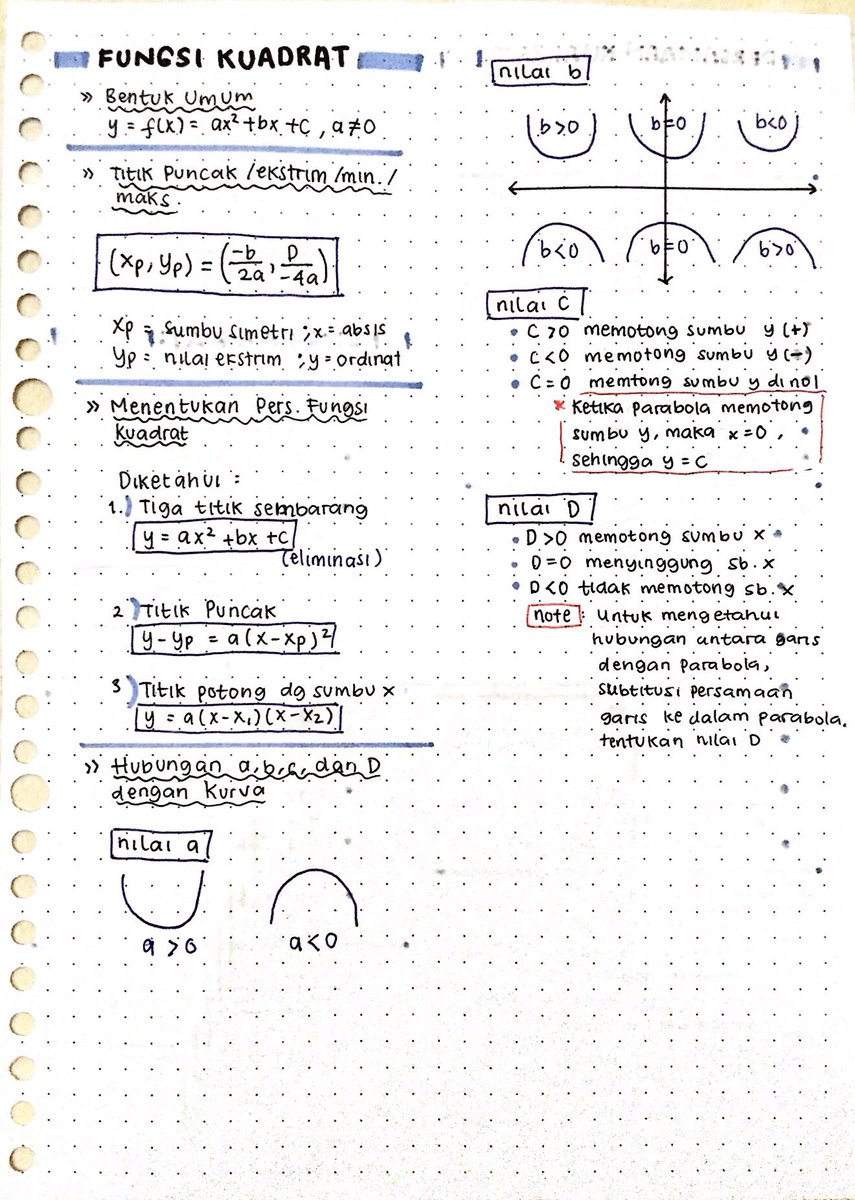 FUNGSI KUADRAT
» Bentuk Umum
y = f(x) = ax² + bx + c , a ≠ 0
» Titik Puncak /ekstrim /min. /
maks.
(xp, yp) = (-b/2a, D/-4a)
xp = sumbu simetri ; x = absis
yp = nilai ekstrim ; y = ordinat
» Menentukan Pers. Fungsi
Kuadrat
Diketahui :
1.) Tiga titik sembarang
y = ax² + bx + c
(eliminasi)
2) Titik Puncak
y - yp = a (x - xp)²
3) Titik potong dg sumbu x
y = a (x - x₁) (x - x₂)
» Hubungan a, b, c, dan D
dengan Kurva
nilai a
a > 0 a < 0
nilai b
b > 0 b = 0 b < 0
b < 0 b = 0 b > 0
nilai C
• C > 0 memotong sumbu y (+)
• C < 0 memotong sumbu y (-)
• C = 0 memtong sumbu y di nol
* Ketika parabola memotong
sumbu y, maka x = 0 ,
sehingga y = C
nilai D
• D > 0 memotong sumbu x
• D = 0 menyinggung sb. x
• D < 0 tidak memotong sb. x
note : Untuk mengetahui
hubungan antara garis
dengan parabola,
subtitusi persamaan
garis ke dalam parabola.
tentukan nilai D